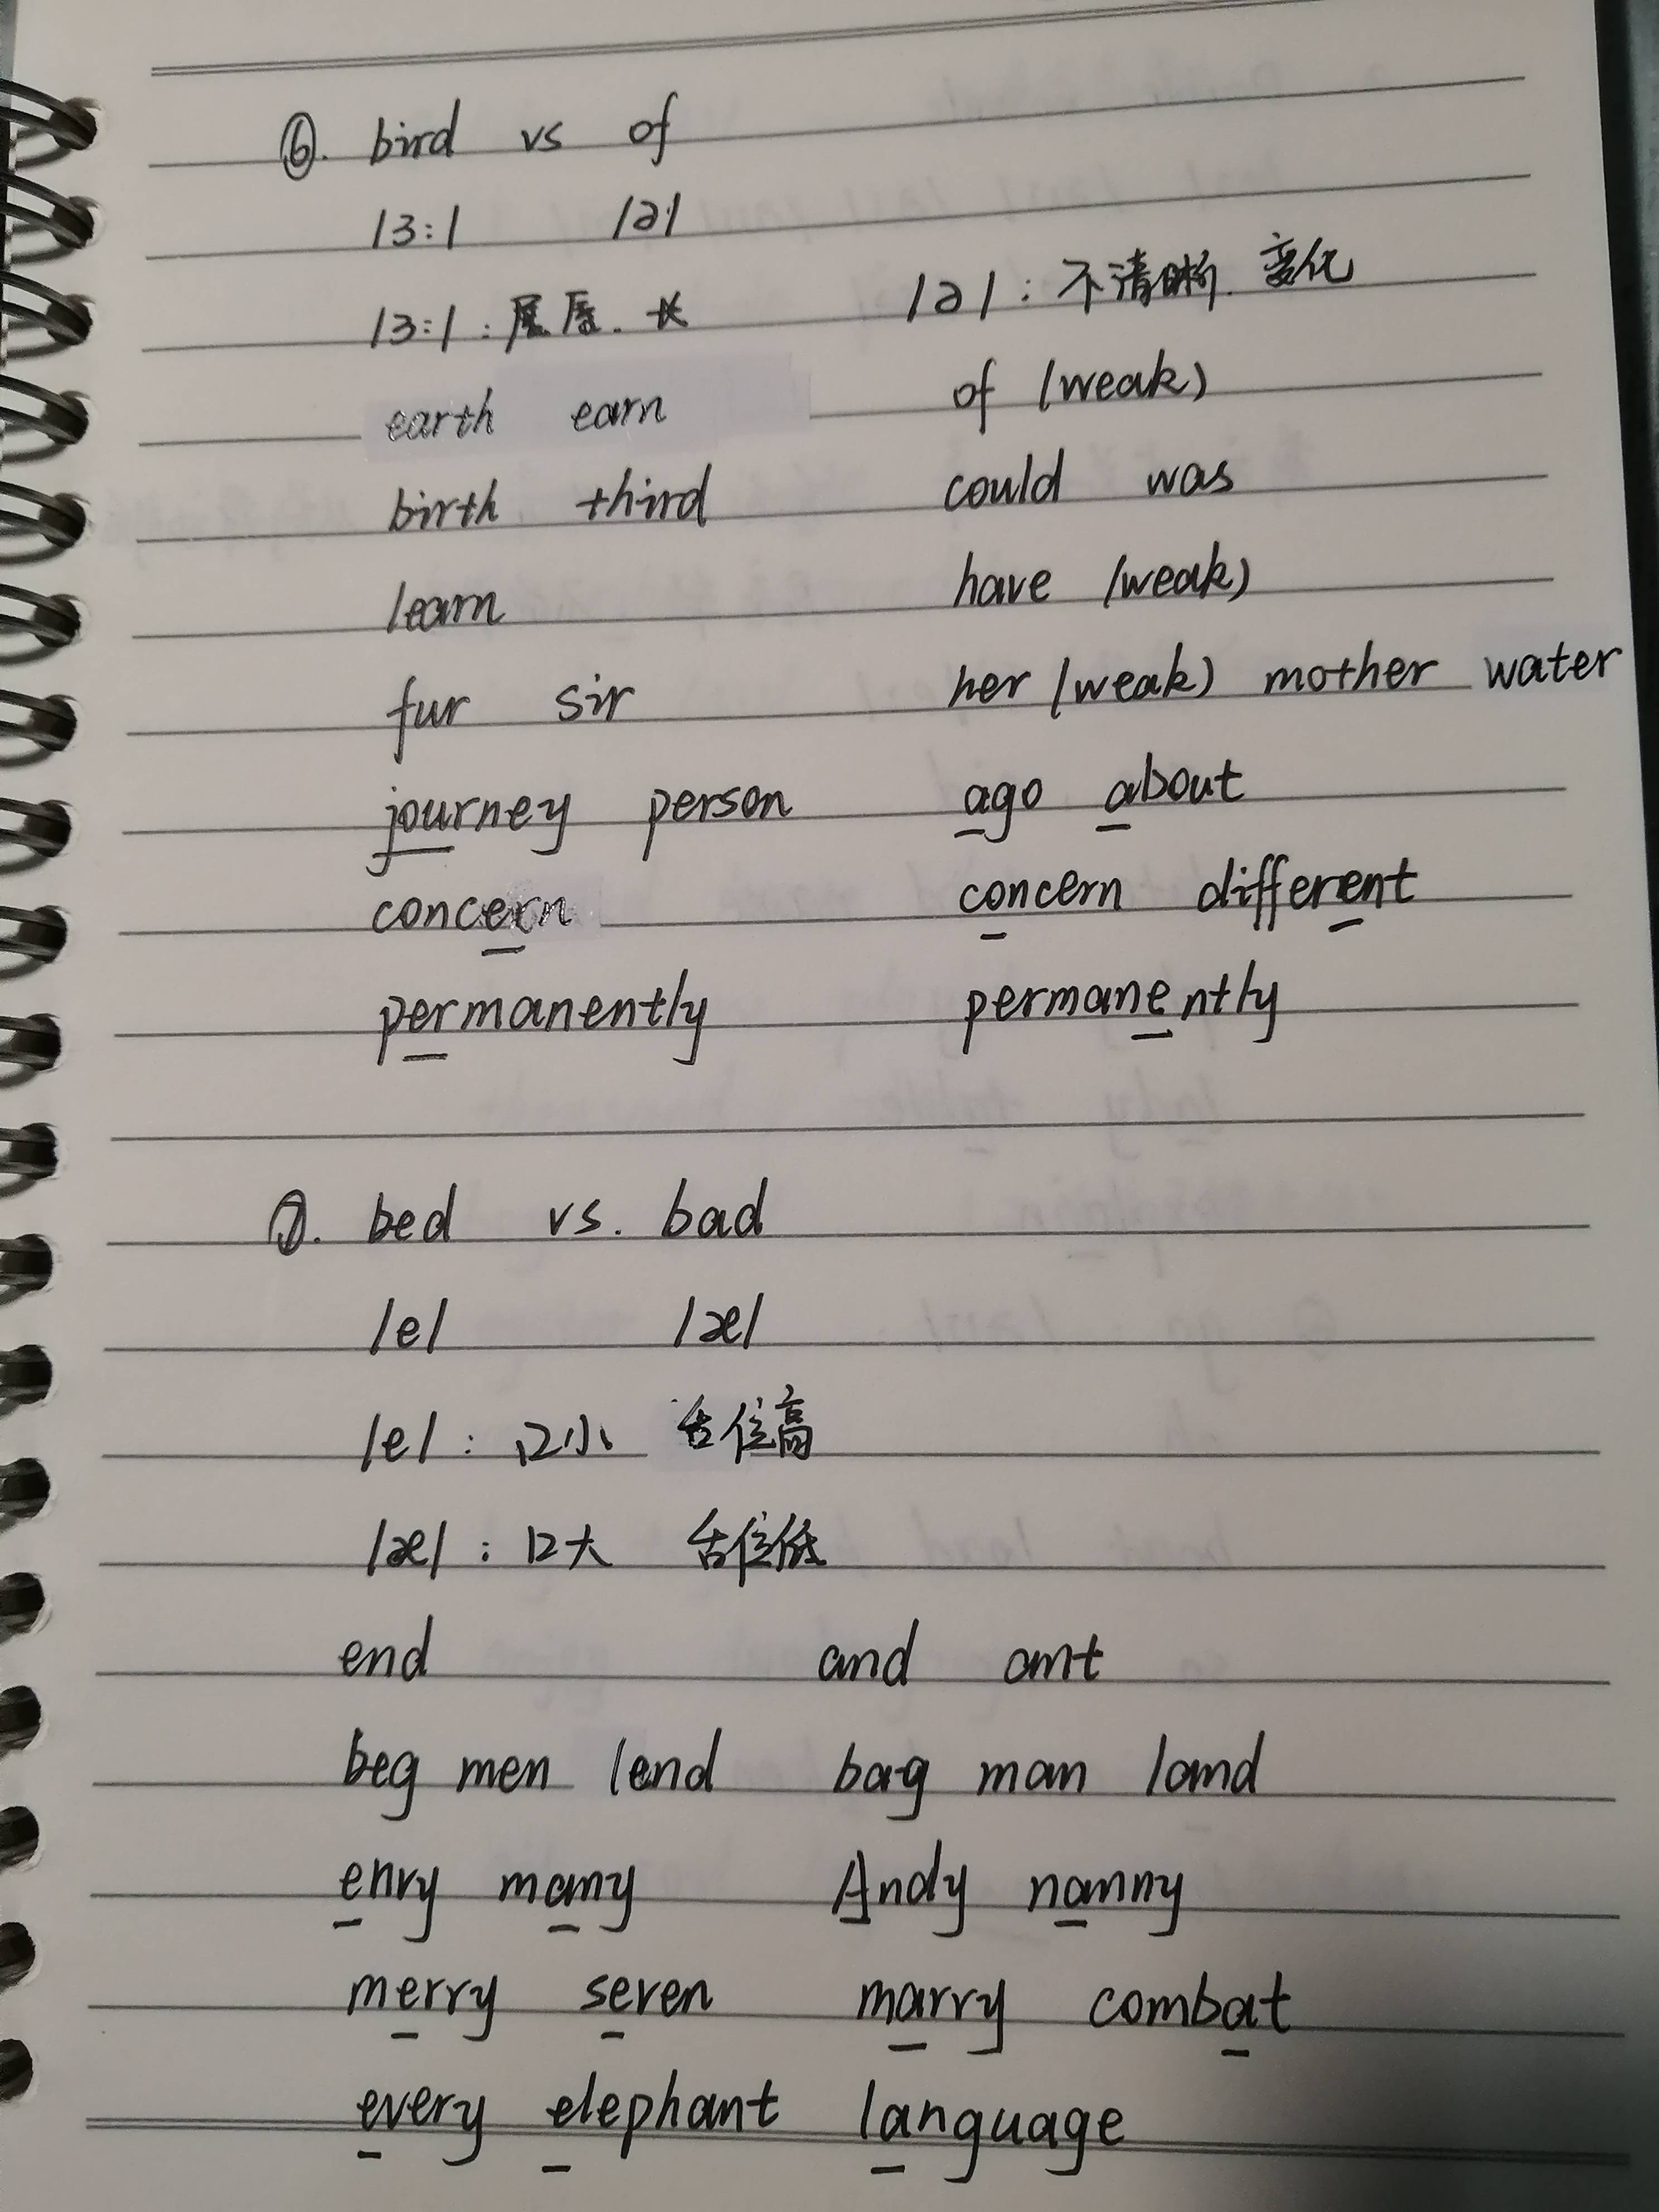 ⑥. bird vs of
/ɜ:/ /ə/
/ɜ:/ : 展唇. 长 /ə/ : 不清晰. 变化
earth earn of (weak)
birth third could was
learn have (weak)
fur sir her (weak) mother water
journey person ago about
concern concern different
permanently permanently
⑦. bed vs. bad
/e/ /æ/
/e/ : 口小 舌位高
/æ/ : 口大 舌位低
end and ant
beg men lend bag man land
envy many Andy nanny
merry seven marry combat
every elephant language